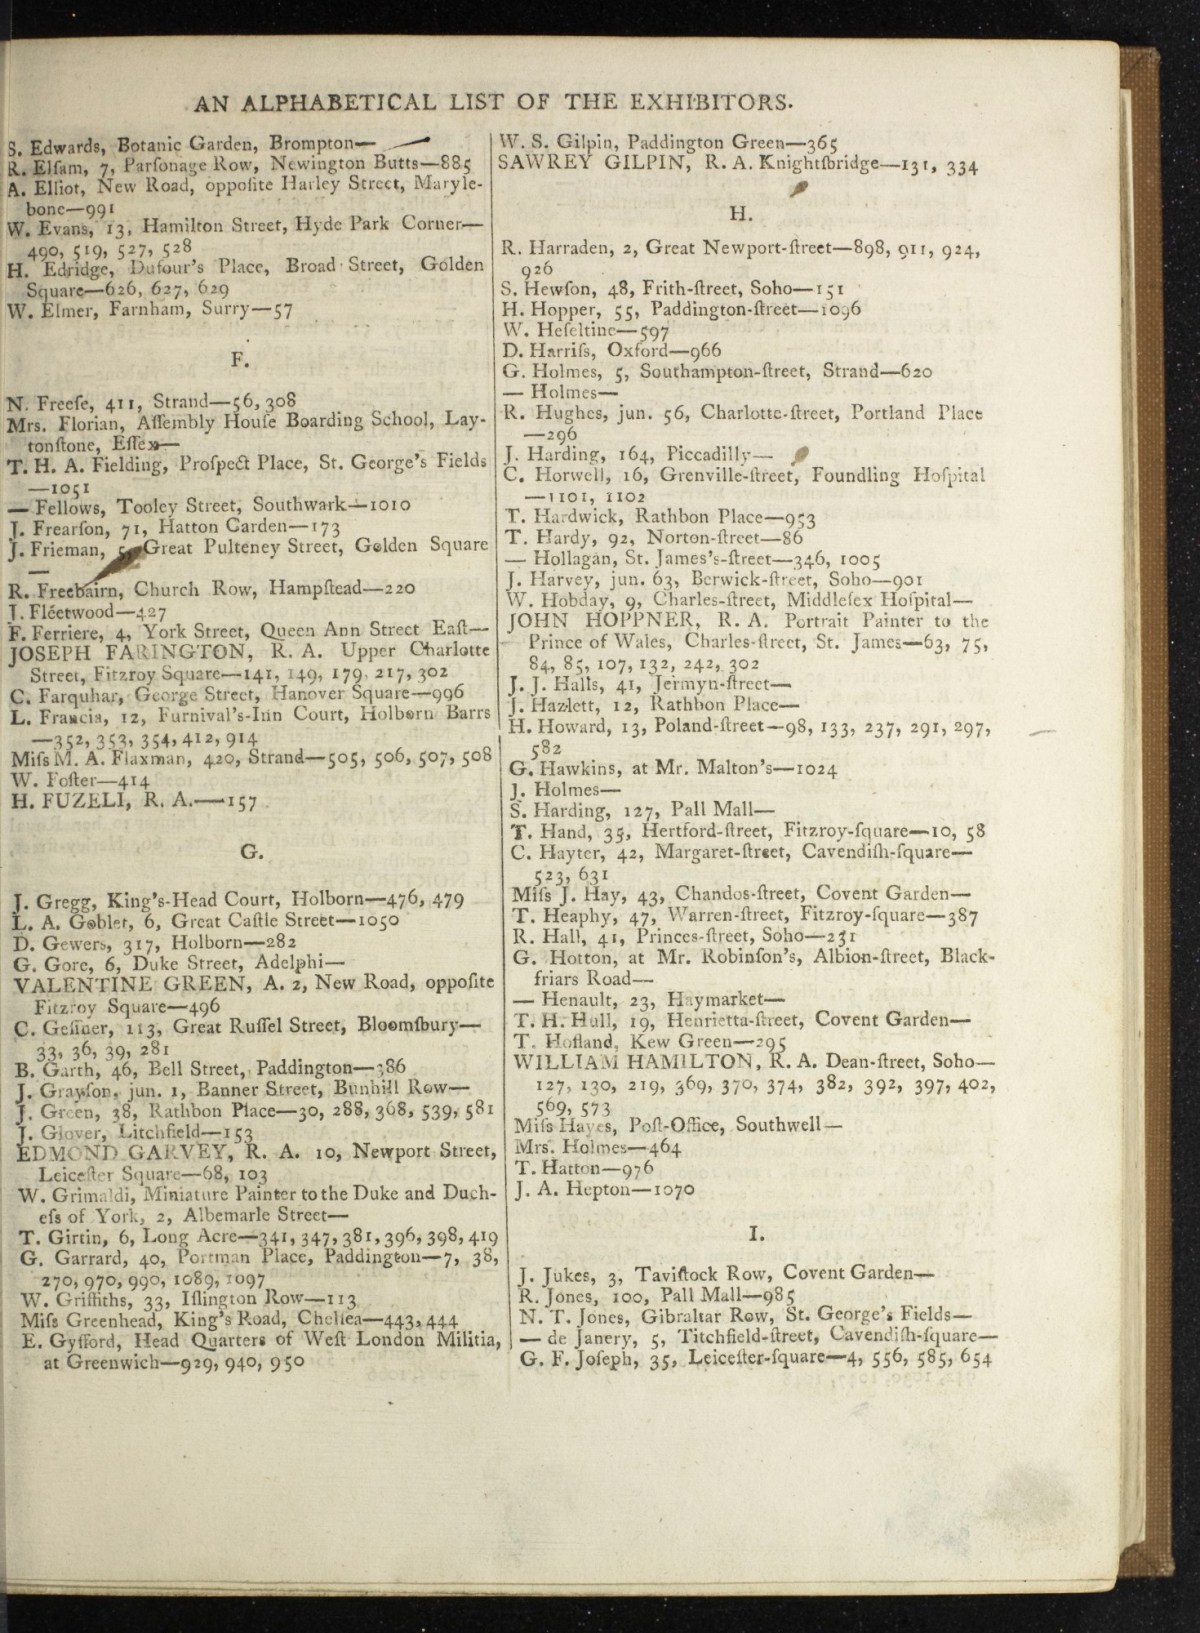 AN ALPHABETICAL LIST OF THE EXHIBITORS.
S. Edwards, Botanic Garden, Brompton—
R. Elſam, 7, Parſonage Row, Newington Butts—885
A. Elliot, New Road, oppoſite Harley Street, Maryle-
bone—991
W. Evans, 13, Hamilton Street, Hyde Park Corner—
490, 519, 527, 528
H. Edridge, Dufour's Place, Broad Street, Golden
Square—626, 627, 629
W. Elmer, Farnham, Surry—57
F.
N. Freeſe, 411, Strand—56, 308
Mrs. Florian, Aſſembly Houſe Boarding School, Lay-
tonſtone, Eſſex—
T. H. A. Fielding, Proſpect Place, St. George's Fields
—1051
— Fellows, Tooley Street, Southwark—1010
J. Frearſon, 71, Hatton Garden—173
J. Frieman, 5, Great Pulteney Street, Golden Square
—
R. Freebairn, Church Row, Hampſtead—220
J. Fleetwood—427
F. Ferriere, 4, York Street, Queen Ann Street Eaſt—
JOSEPH FARINGTON, R. A. Upper Charlotte
Street, Fitzroy Square—141, 149, 179, 217, 302
C. Farquhar, George Street, Hanover Square—996
L. Francia, 12, Furnival's-Inn Court, Holborn Barrs
—352, 353, 354, 412, 914
Miſs M. A. Flaxman, 420, Strand—505, 506, 507, 508
W. Foſter—414
H. FUZELI, R. A.—157
G.
J. Gregg, King's-Head Court, Holborn—476, 479
L. A. Goblet, 6, Great Caſtle Street—1050
D. Gewers, 317, Holborn—282
G. Gore, 6, Duke Street, Adelphi—
VALENTINE GREEN, A. 2, New Road, oppoſite
Fitzroy Square—496
C. Geſſner, 113, Great Ruſſel Street, Bloomſbury—
33, 36, 39, 281
B. Garth, 46, Bell Street, Paddington—386
J. Grayſon, jun. 1, Banner Street, Bunhill Row—
J. Green, 38, Rathbon Place—30, 288, 368, 539, 581
J. Glover, Litchfield—153
EDMOND GARVEY, R. A. 10, Newport Street,
Leiceſter Square—68, 103
W. Grimaldi, Miniature Painter to the Duke and Duch-
eſs of York, 2, Albemarle Street—
T. Girtin, 6, Long Acre—341, 347, 381, 396, 398, 419
G. Garrard, 40, Portman Place, Paddington—7, 38,
270, 970, 990, 1089, 1097
W. Griffiths, 33, Iſlington Row—113
Miſs Greenhead, King's Road, Chelſea—443, 444
E. Gyfford, Head Quarters of Weſt London Militia,
at Greenwich—929, 940, 950
W. S. Gilpin, Paddington Green—365
SAWREY GILPIN, R. A. Knightſbridge—131, 334
H.
R. Harraden, 2, Great Newport-ſtreet—898, 911, 924,
926
S. Hewſon, 48, Frith-ſtreet, Soho—151
H. Hopper, 55, Paddington-ſtreet—1096
W. Heſeltine—597
D. Harriſs, Oxford—966
G. Holmes, 5, Southampton-ſtreet, Strand—620
— Holmes—
R. Hughes, jun. 56, Charlotte-ſtreet, Portland Place
—296
J. Harding, 164, Piccadilly—
C. Horwell, 16, Grenville-ſtreet, Foundling Hoſpital
—1101, 1102
T. Hardwick, Rathbon Place—953
T. Hardy, 92, Norton-ſtreet—86
— Hollagan, St. James's-ſtreet—346, 1005
J. Harvey, jun. 63, Berwick-ſtreet, Soho—901
W. Hobday, 9, Charles-ſtreet, Middleſex Hoſpital—
JOHN HOPPNER, R. A. Portrait Painter to the
Prince of Wales, Charles-ſtreet, St. James—63, 75,
84, 85, 107, 132, 242, 302
J. J. Halls, 41, Jermyn-ſtreet—
J. Hazlett, 12, Rathbon Place—
H. Howard, 13, Poland-ſtreet—98, 133, 237, 291, 297,
582
G. Hawkins, at Mr. Malton's—1024
J. Holmes—
S. Harding, 127, Pall Mall—
T. Hand, 35, Hertford-ſtreet, Fitzroy-ſquare—10, 58
C. Hayter, 42, Margaret-ſtreet, Cavendiſh-ſquare—
523, 631
Miſs J. Hay, 43, Chandos-ſtreet, Covent Garden—
T. Heaphy, 47, Warren-ſtreet, Fitzroy-ſquare—387
R. Hall, 41, Princes-ſtreet, Soho—231
G. Hotton, at Mr. Robinſon's, Albion-ſtreet, Black-
friars Road—
— Henault, 23, Haymarket—
T. H. Hull, 19, Henrietta-ſtreet, Covent Garden—
T. Hofland, Kew Green—295
WILLIAM HAMILTON, R. A. Dean-ſtreet, Soho—
127, 130, 219, 369, 370, 374, 382, 392, 397, 402,
569, 573
Miſs Hayes, Poſt-Office, Southwell—
Mrs. Holmes—464
T. Hatton—976
J. A. Hepton—1070
I.
J. Jukes, 3, Taviſtock Row, Covent Garden—
R. Jones, 100, Pall Mall—985
N. T. Jones, Gibraltar Row, St. George's Fields—
— de Janery, 5, Titchfield-ſtreet, Cavendiſh-ſquare—
G. F. Joſeph, 35, Leiceſter-ſquare—4, 556, 585, 654